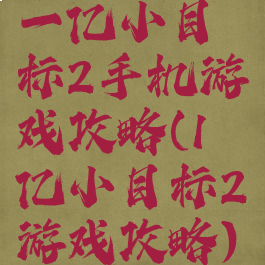 一亿小目
标2手机游
戏攻略(1
亿小目标2
游戏攻略)